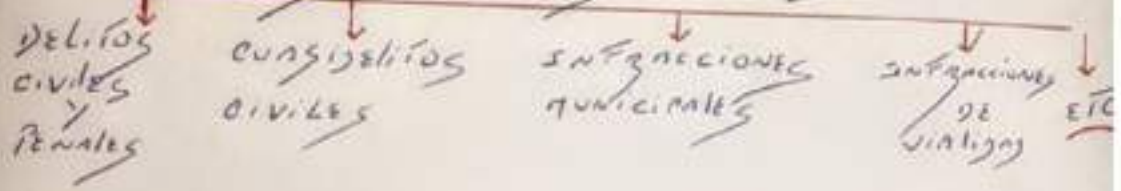 DELITOS
CIVILES
Y
PENALES
CUASIDELITOS
CIVILES
INFRACCIONES
MUNICIPALES
INFRACCIONES
DE
VIALIDAD
ETC